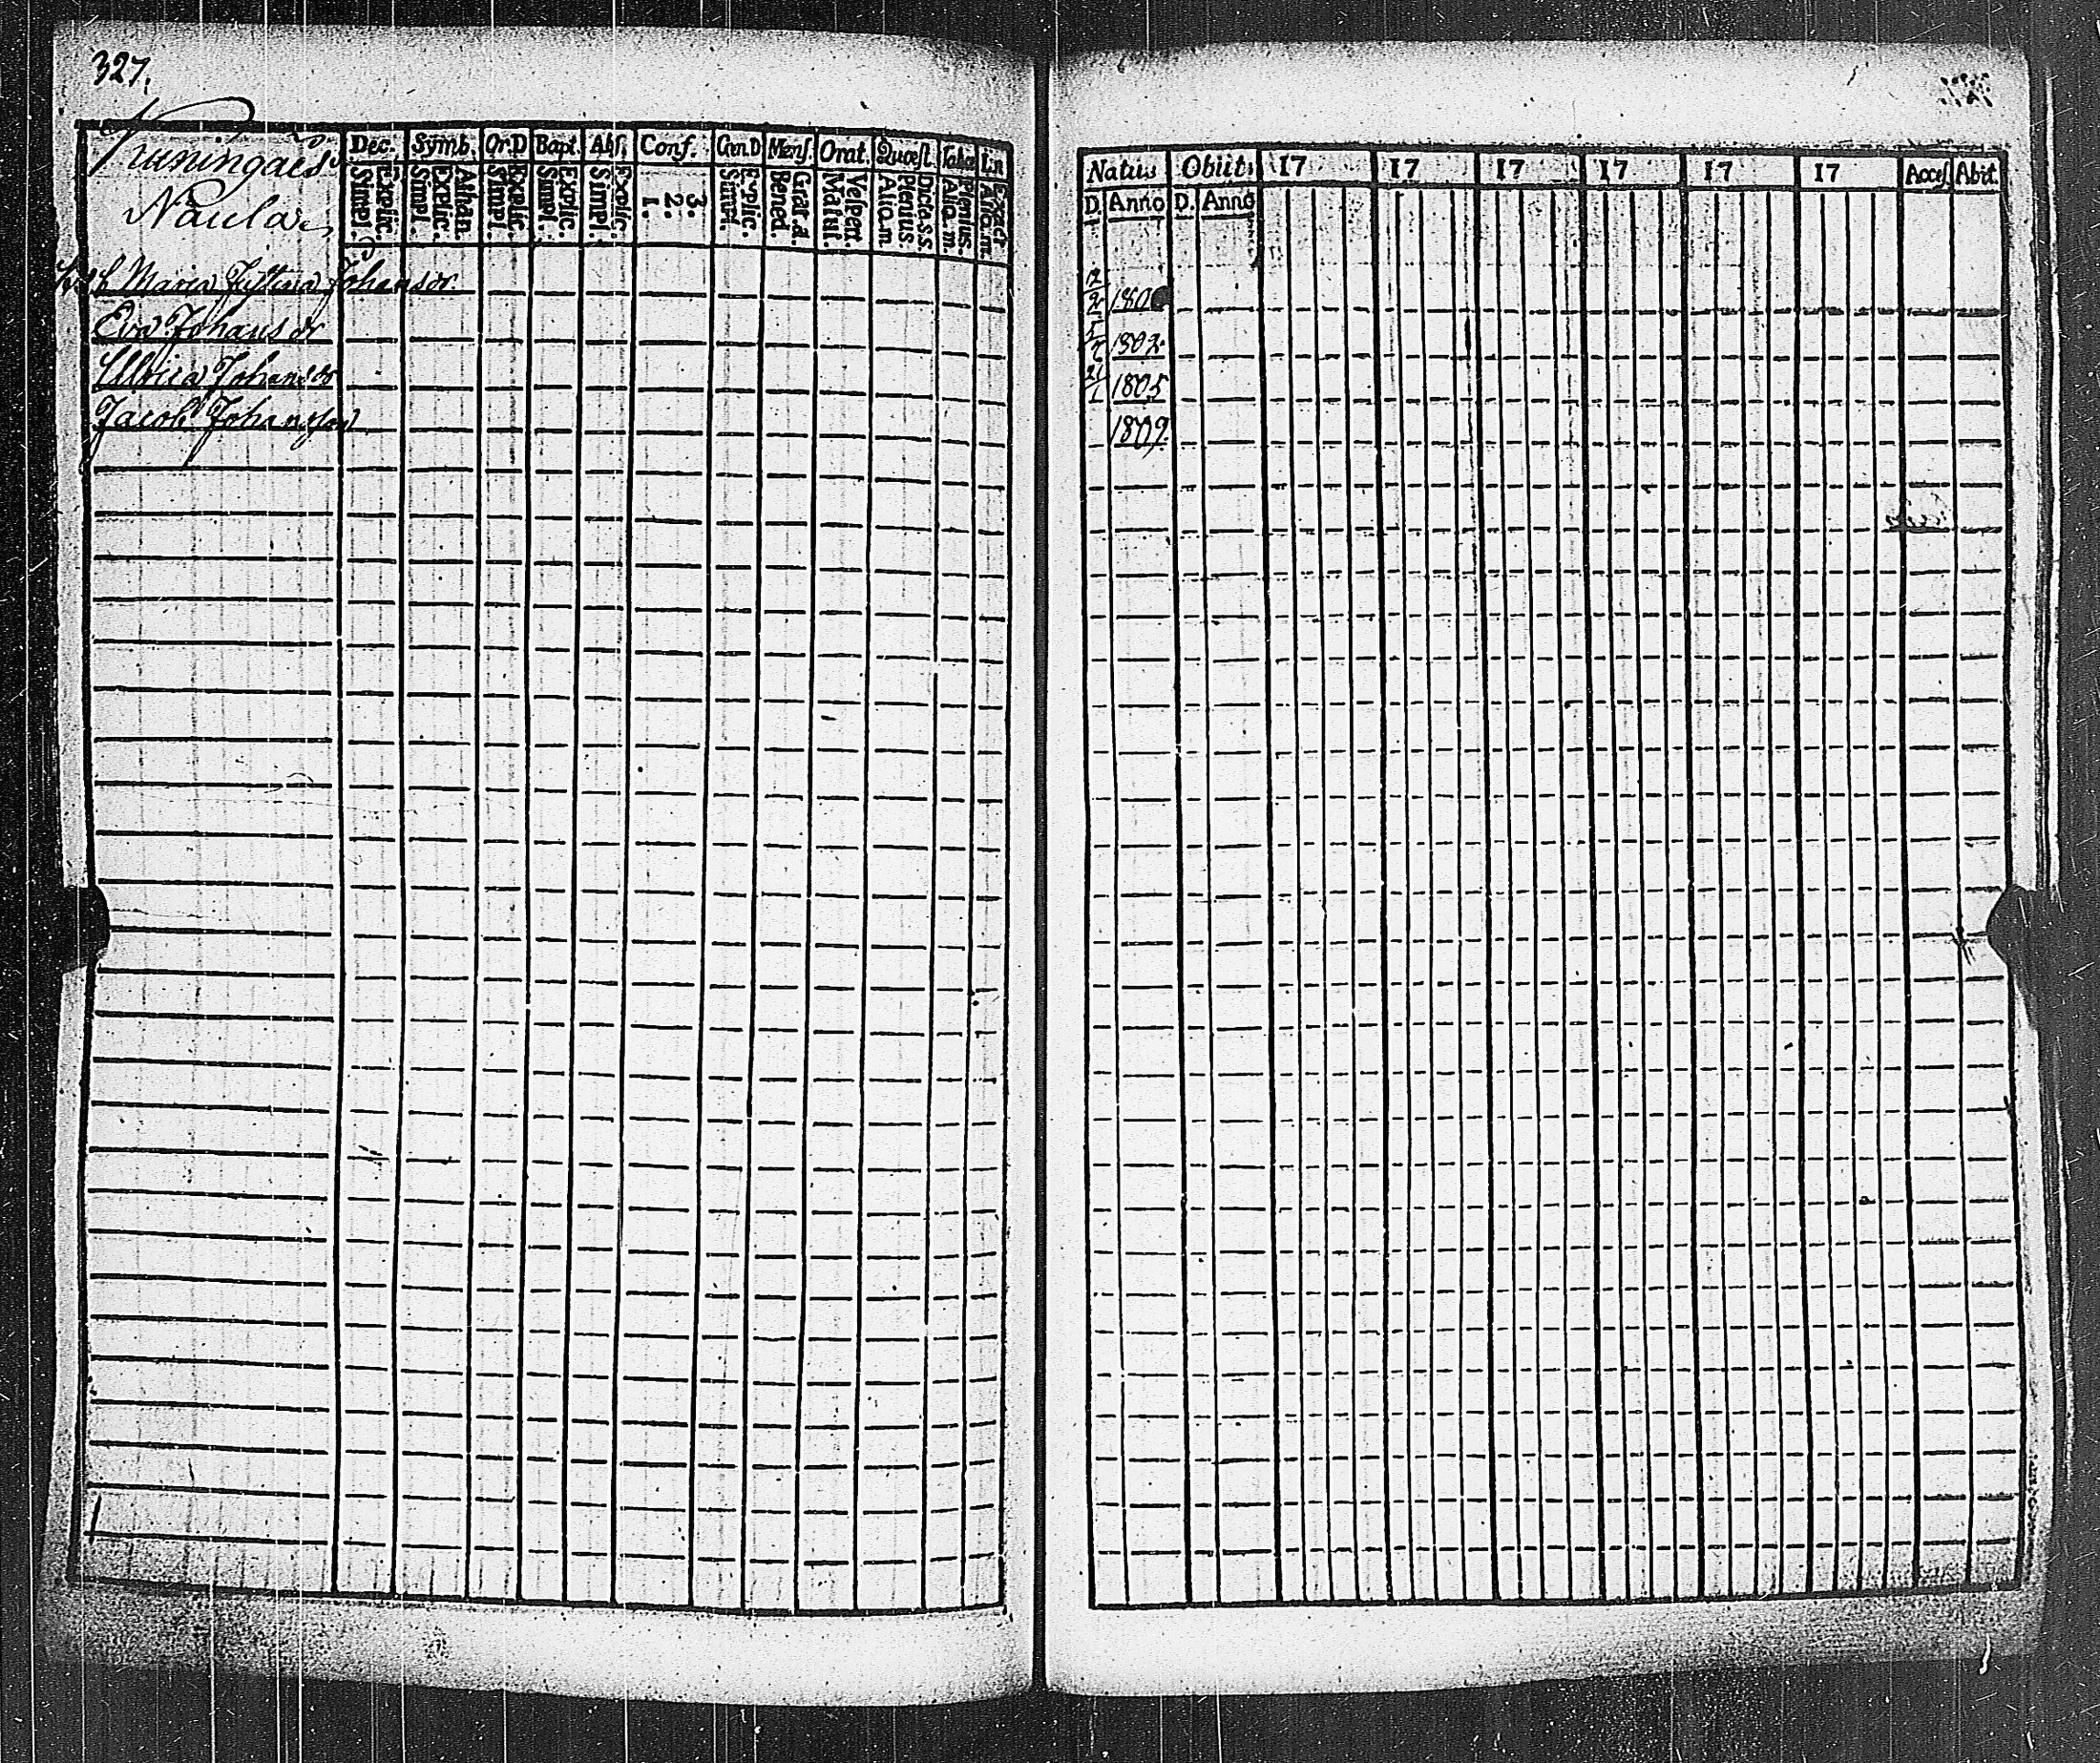 327.
Kuningais
Naula
Dec. Symb. Or.D Bapt. Abs. Conf. Cœn.D Mens. Orat. Quæst. Taba Lin
Simpl. Explic. Simpl. Explic. Athan. Simpl. Explic. Simpl. Explic. Simpl. Explic. 1. 2. 3. Simpl. Explic. Bened. Grat. a. Matut. Vespert. Aliq. m. Plenius Dicta s.s. Aliq. m. Plenius. Aliq. m. Exact
Maria Justina Johans dr
Eva Johans dr
Ulrica Johans dr
Jacob Johansson
Natus Obiit 17 17 17 17 17 17 Acces. Abit.
D. Anno D. Anno
12/2 180
5/7 1802.
21/1 1805
1809.